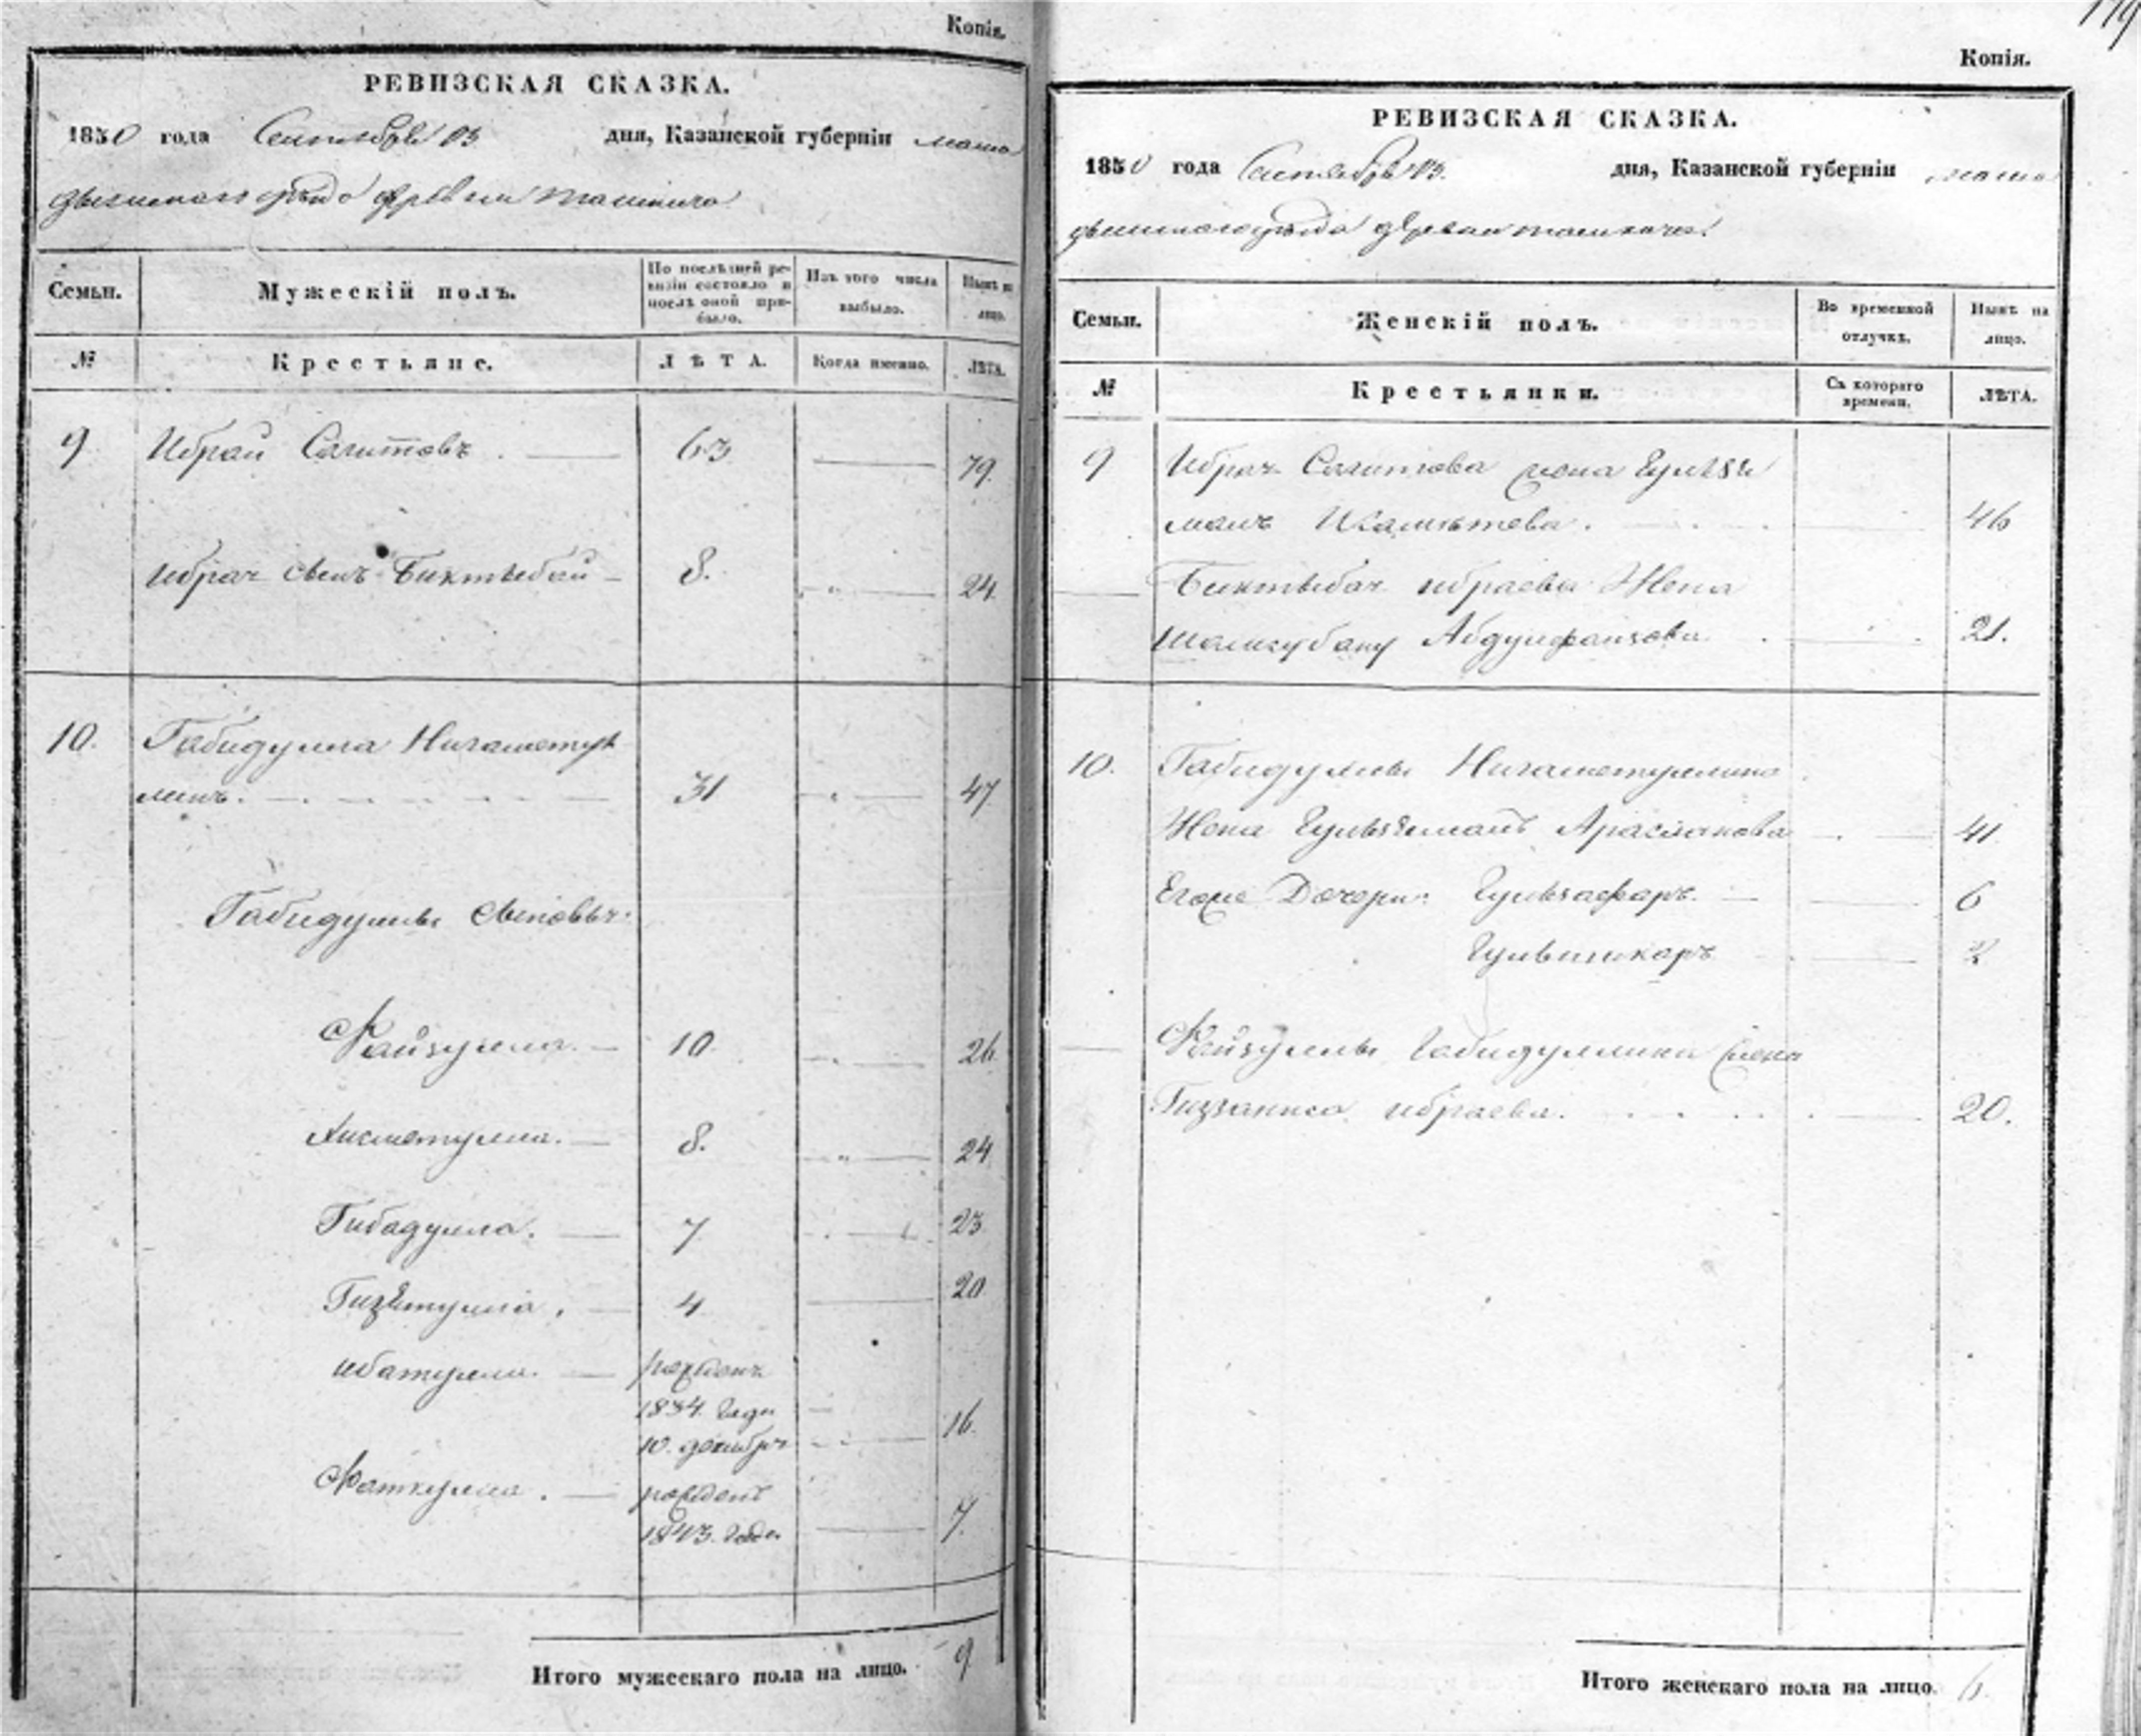 Копія.
РЕВИЗСКАЯ СКАЗКА.
1850 года Сентября 13 дня, Казанской губерніи мама
дышскаго уѣзда деревни
Семьи.
Мужескій полъ.
По послѣдней ре-
визіи состояло и
послѣ оной при-
было.
Изъ того числа
выбыло.
Нынѣ на
лицо.
№
Крестьяне.
ЛѢТА.
Когда именно.
ЛѢТА.
9 Ибрай Сагитовъ 63 79.
Ибрая сынъ Биктыбай 8. 24
10. Габидулла Нигаметул
линъ. 31 47
Габидуллы сыновья:
Файзулла. 10 26
Хисметулла. 8. 24
Гибадулла. 7 23
Гизетулла. 4 20
Ибатулла. рожденъ
1834. года
10. декабря 16.
Фаткулла. рожденъ
1843. года 7.
Итого мужескаго пола на лицо. 9
119
Копія.
РЕВИЗСКАЯ СКАЗКА.
1850 года Сентября 13. дня, Казанской губерніи мама
дышскаго уѣзда деревни
Семьи.
Женскій полъ.
Во временной
отлучкѣ.
Нынѣ на
лицо.
№
Крестьянки.
Съ котораго
времени.
ЛѢТА.
9 Ибрая Сагитова жена Гульзя
манъ 46
Биктыбая Ибраева Жена
Шамсубану Абдулфаизова 21.
10. Габидуллы Нигаметуллина
Жена Гульзяманъ Арасланова 41
Егоже Дочери: Гульзафаръ. 6
Гульшикаръ 2
Файзуллы Габидуллина жена
Гиззаниса Ибраева. 20.
Итого женскаго пола на лицо. 6.